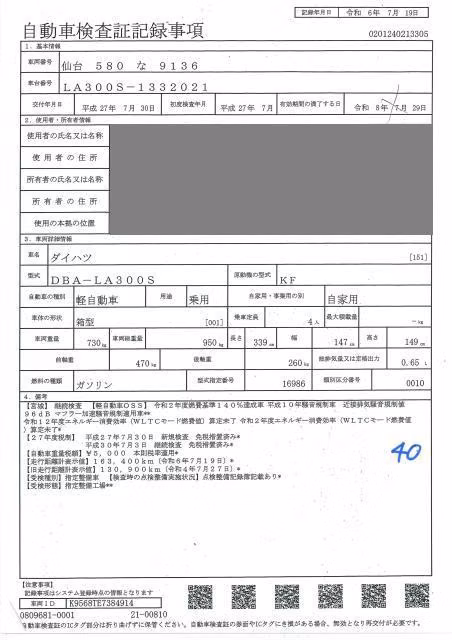 記録年月日 令和 6年 7月 19日
自動車検査証記録事項
0201240213305
1．基本情報
車両番号 仙台 580 な 9136
車台番号 LA300S-1332021
交付年月日 平成 27年 7月 30日 初度検査年月 平成 27年 7月 有効期間の満了する日 令和 8年 7月 29日
2．使用者・所有者情報
使用者の氏名又は名称
使用者の住所
所有者の氏名又は名称
所有者の住所
使用の本拠の位置
3．車両詳細情報
車名 ダイハツ [151]
型式 DBA-LA300S 原動機の型式 KF
自動車の種別 軽自動車 用途 乗用 自家用・事業用の別 自家用
車体の形状 箱型 [001] 乗車定員 4人 最大積載量 -kg
車両重量 730kg 車両総重量 950kg 長さ 339cm 幅 147cm 高さ 149cm
前軸重 470kg 後軸重 260kg 総排気量又は定格出力 0.65 L
燃料の種類 ガソリン 型式指定番号 16986 類別区分番号 0010
4．備考
【宮城】 継続検査 【軽自動車OSS】 令和2年度燃費基準140%達成車 平成10年騒音規制車 近接排気騒音規制値
96dB マフラー加速騒音規制適用車**
令和12年度エネルギー消費効率(WLTCモード燃費値)算定未了 令和2年度エネルギー消費効率(WLTCモード燃費値
)算定未了*
【27年度税制】 平成27年7月30日 新規検査 免税措置済み*
平成30年7月3日 継続検査 免税措置済み*
【自動車重量税額】¥5,000 本則税率適用*
【走行距離計表示値】163,400km(令和6年7月19日)*
【旧走行距離計表示値】130,900km(令和4年7月27日)*
【受検種別】指定整備車 【検査時の点検整備実施状況】点検整備記録簿記載あり*
【受検形態】指定整備工場**
40
【注意事項】
記録事項はシステム登録時点の情報となります
車両ID K9568TE7384914
0809681-0001 21-00810
自動車検査証のICタグ部分は折り曲げずに保管ください。自動車検査証の券面やICタグにき損がある場合、弊敗となり再交付が必要です。